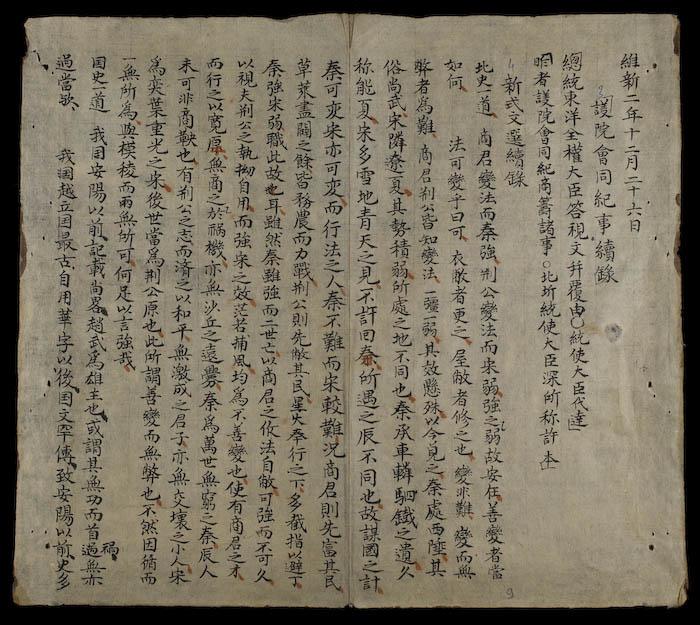 維新二年十二月二十六日
護院會同紀事續錄
總統東洋全權大臣答視文并覆由統使大臣代達
昨者護院會同紀商籌諸事○北圻統使大臣深所称許本
新式文選續錄
北史一道 商君變法而秦強荆公變法而宋弱強之弱故安在善變者當
如何 法可變乎曰可 衣敝者更之 屋敝者修之也 變非難 變而無
弊者為難 商君荆公皆知變法 一彊一弱其效懸殊以今見之秦處西陲其
俗尚武宋隣遼夏其勢積弱所處之地不同也秦承車轔駟鐵之遺久
称能夏宋多雪地青天之見不許回秦所遇之辰不同也故謀国之計
秦可变宋亦可变而行法之人秦不難而宋較難況商君則先富其民
草萊盡闢之餘皆務農而力戰荆公則先敝其民星火奉行之下多截指以避丁
秦強宋弱職此故也耳雖然秦雖強而二世亡以商君之依法自敝可強而不可久
以視夫荆公之執拗自用而強宋之效茫若捕風均為不善變也使有商君之才
而行之以寬厚無商之於祸機亦無沙丘之遠釁秦為萬世無窮之秦辰人
未可非商鞅也有荆公之志而濟之以和平無激成之君子亦無交壞之小人宋
為奕葉重光之宋後世當為荆公原也此所謂善變而無弊也不然因循而
一無所為與模棱而兩無所可何足以言強哉
国史一道 我国安陽以前記載尚畧趙武為雄主也或謂其無功而首過無亦
祸
過當歟 我国越立国最古自用華字以後国文罕傳致安陽以前史多
9